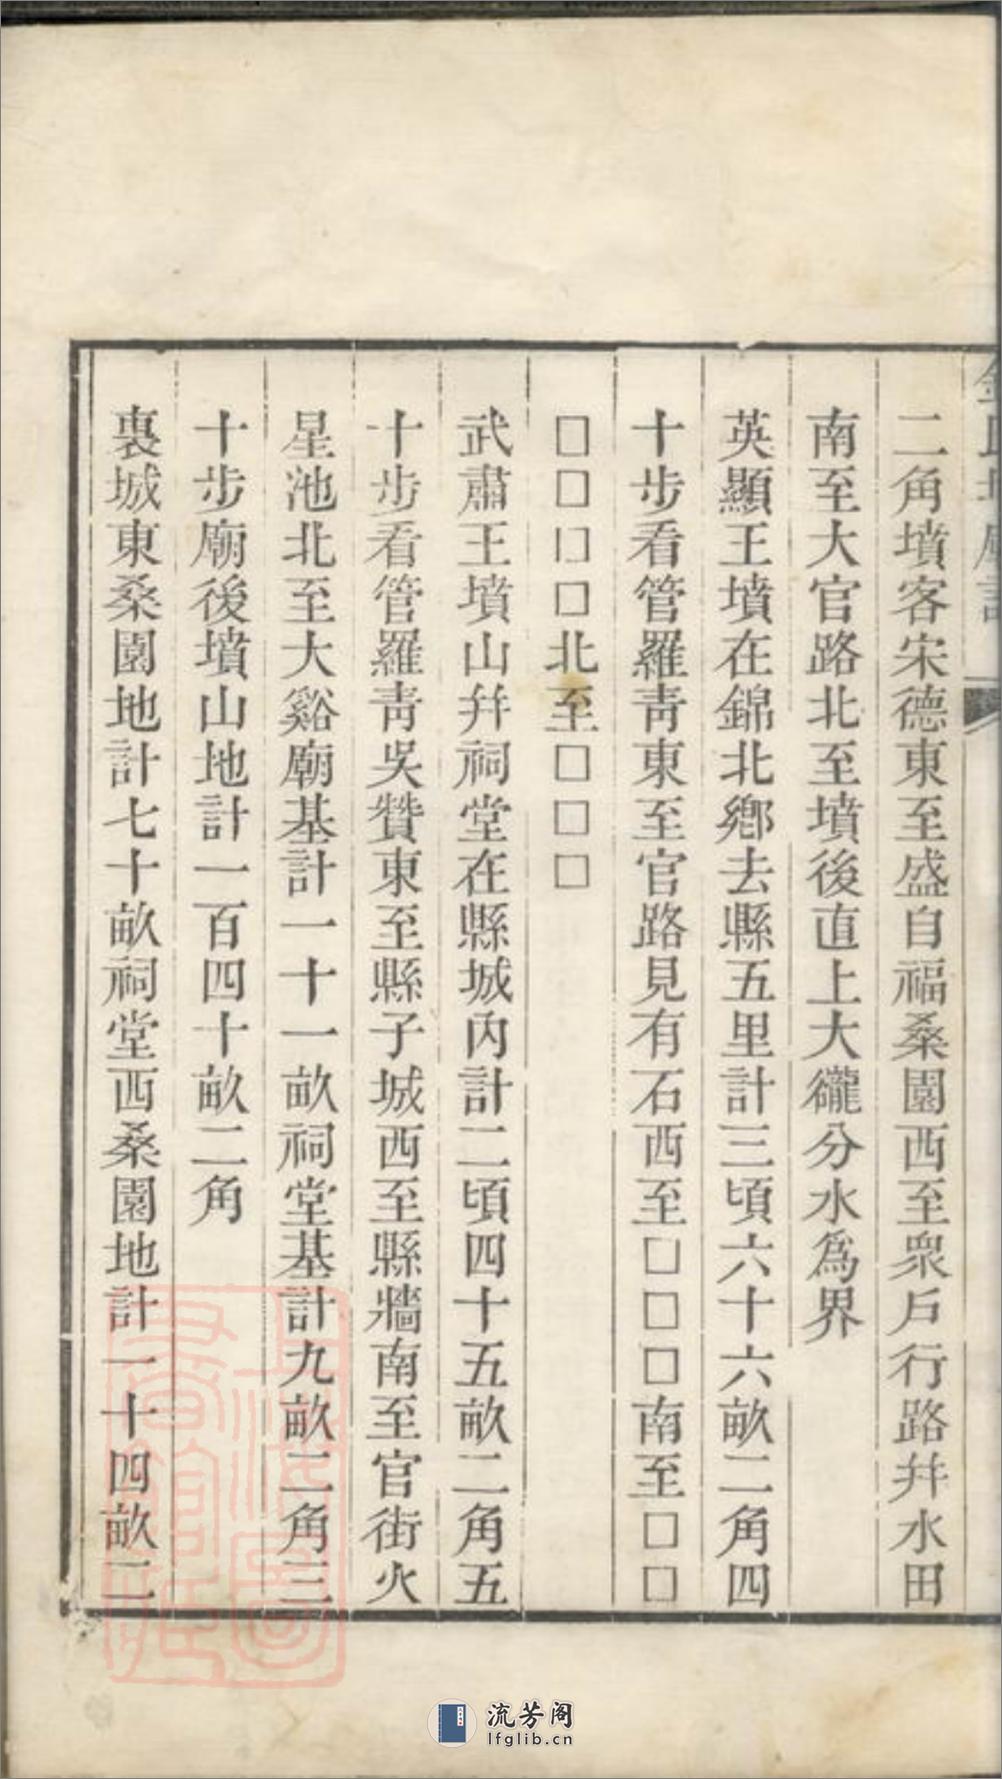 二角墳客宋德東至盛自福桑園西至衆戶行路幷水田
南至大官路北至墳後直上大𡾋分水爲界
英顯王墳在錦北鄉去縣五里計三頃六十六畝二角四
十步看管羅靑東至官路見有石西至□□□南至□□
□□□□北至□□□
武肅王墳山幷祠堂在縣城內計二頃四十五畝二角五
十步看管羅靑吳贊東至縣子城西至縣牆南至官街火
星池北至大谿廟基計一十一畝祠堂基計九畝二角三
十步廟後墳山地計一百四十畝二角
裏城東桑園地計七十畝祠堂西桑園地計一十四畝二
流芳阁
lfglib.cn